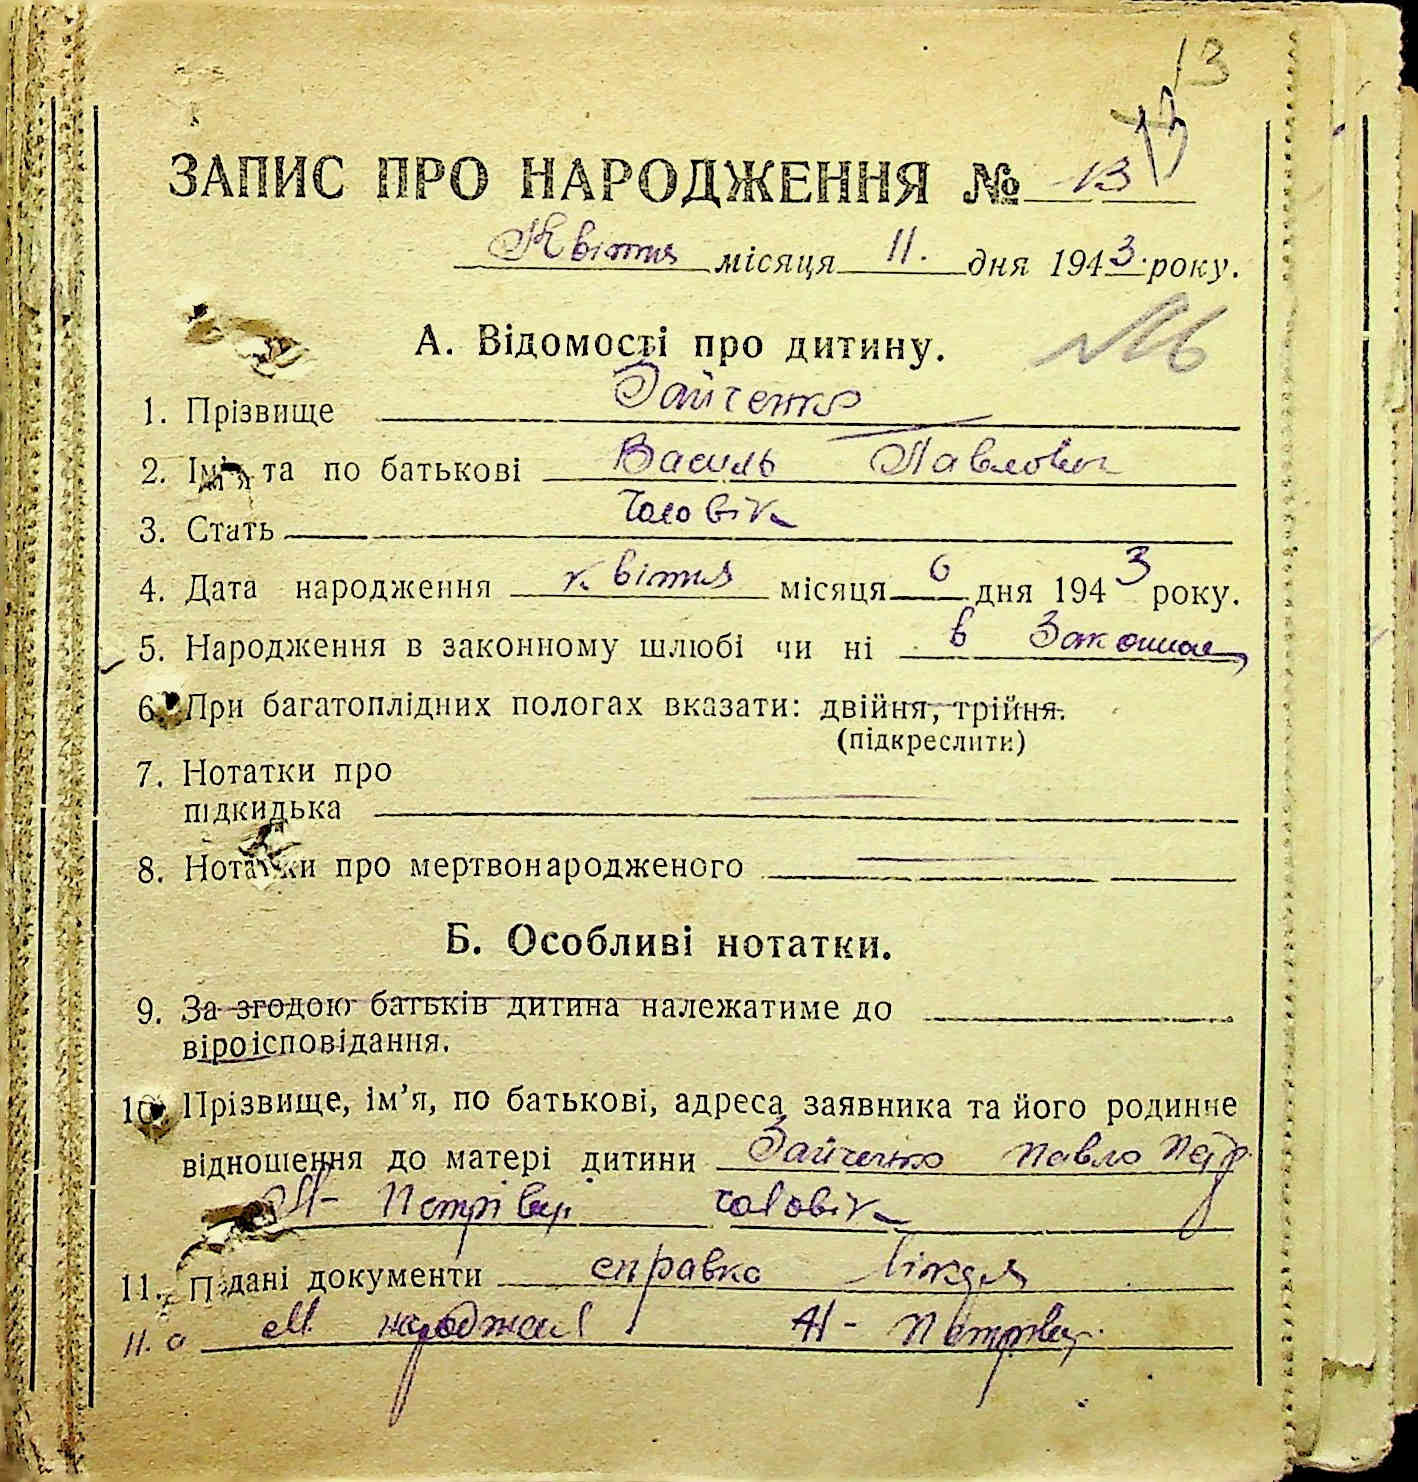 13
13
ЗАПИС ПРО НАРОДЖЕННЯ № 13
Квітня місяця 11. дня 1943. року.
А. Відомості про дитину.
1. Прізвище Зайченко
2. Ім'я та по батькові Василь Павлович
3. Стать Чоловік
4. Дата народження квітня місяця 6 дня 1943 року.
5. Народження в законному шлюбі чи ні в законном
6. При багатоплідних пологах вказати: двійня, трійня.
(підкреслити)
7. Нотатки про
підкидька
8. Нотатки про мертвонародженого
Б. Особливі нотатки.
9. За згодою батьків дитина належатиме до
віроісповідання.
10. Прізвище, ім’я, по батькові, адреса заявника та його родинне
відношення до матері дитини Зайченко Павло Петр.
Н- Петрівці чоловік
11. Подані документи справка лікаря
11. а М. народжен Н- Петрівці